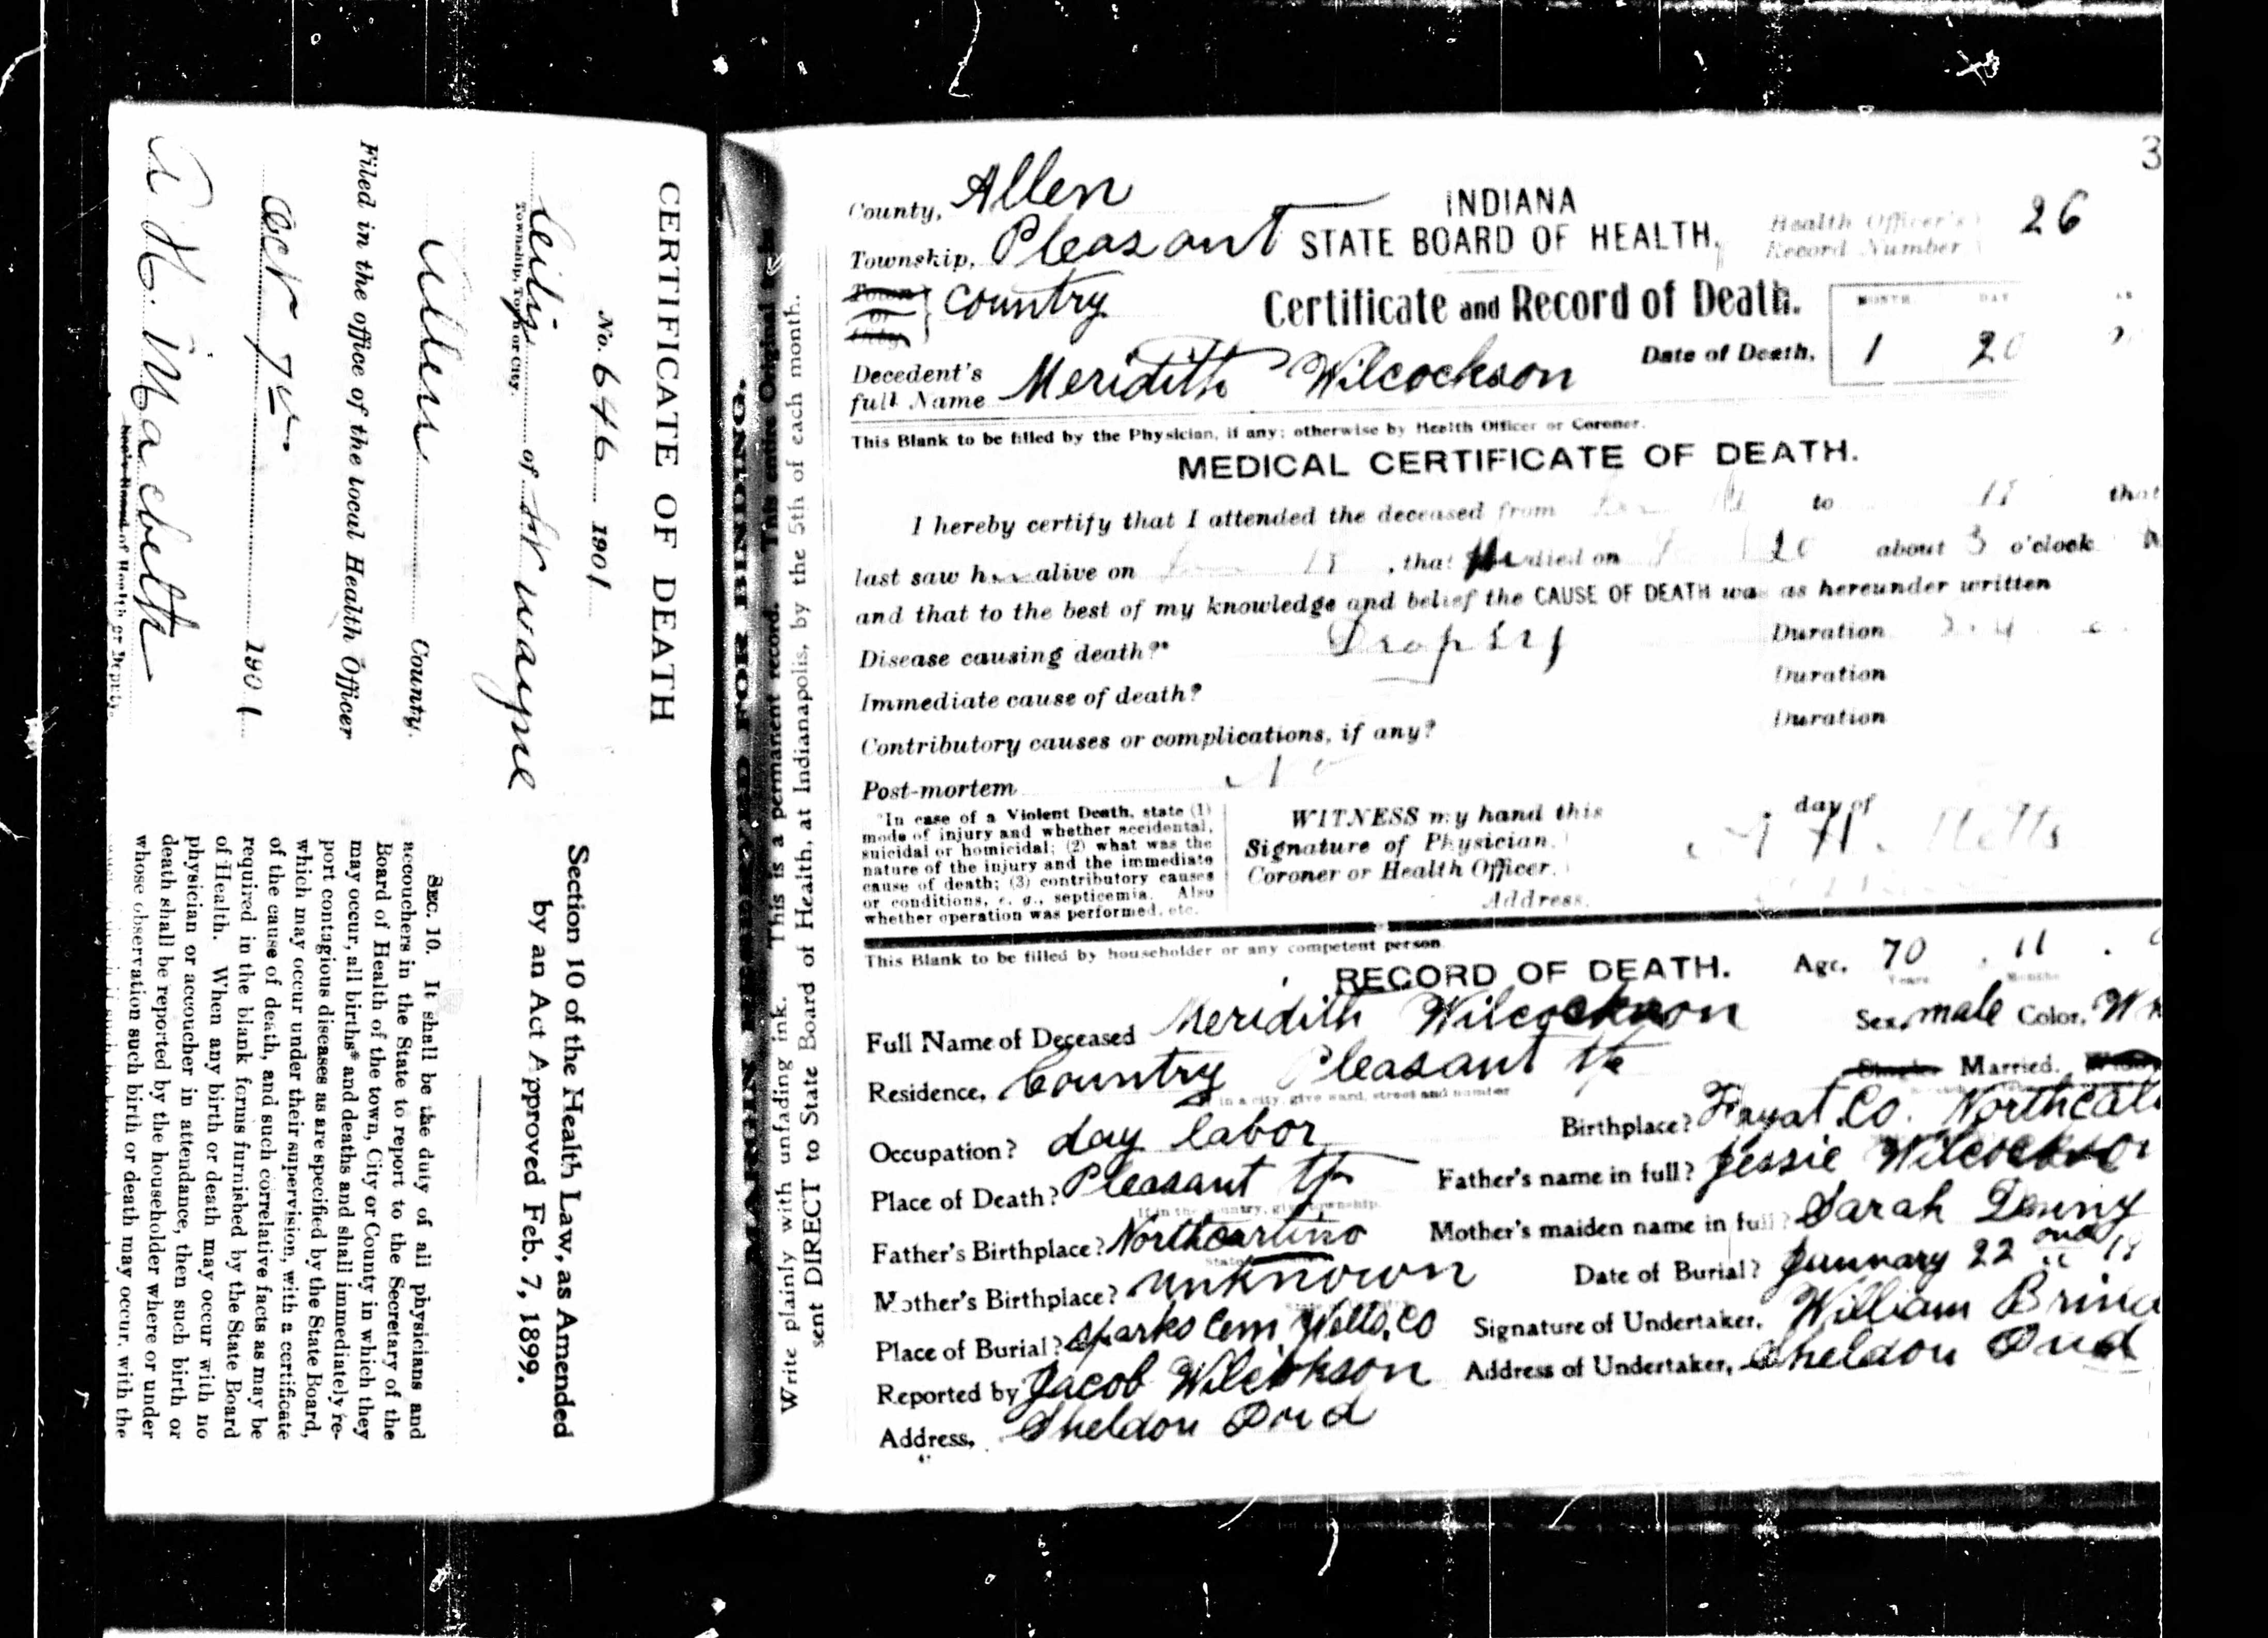 CERTIFICATE OF DEATH
No. 6646 1901
City of Ft Wayne
Township, Town or City.
Allen County.
Filed in the office of the local Health Officer
Oct 7th 1901
A H. Macbeth
of Health or Deputy.
Section 10 of the Health Law, as Amended
by an Act Approved Feb. 7, 1899.
SEC. 10. It shall be the duty of all physicians and
accouchers in the State to report to the Secretary of the
Board of Health of the town, City or County in which they
may occur, all births* and deaths and shall immediately re-
port contagious diseases as are specified by the State Board,
which may occur under their supervision, with a certificate
of the cause of death, and such correlative facts as may be
required in the blank forms furnished by the State Board
of Health. When any birth or death may occur with no
physician or accoucher in attendance, then such birth or
death shall be reported by the householder where or under
whose observation such birth or death may occur, with the
MARGIN RESERVED FOR BINDING.
Write plainly with unfading ink. This is a permanent record. This entire Original to be
sent DIRECT to State Board of Health, at Indianapolis, by the 5th of each month.
3
County, Allen
INDIANA
Township, Pleasant
STATE BOARD OF HEALTH,
Health Officer's
Record Number
26
Town
or
City
Country
Certificate and Record of Death.
MONTH DAY
Date of Death, 1 20
Decedent's
full Name Meridith Wilcockson
This Blank to be filled by the Physician, if any; otherwise by Health Officer or Coroner.
MEDICAL CERTIFICATE OF DEATH.
I hereby certify that I attended the deceased from to 18 that
last saw h alive on 18, that He died on 20 about 3 o'clock
and that to the best of my knowledge and belief the CAUSE OF DEATH was as hereunder written
Disease causing death?* Dropsy Duration
Immediate cause of death? Duration
Contributory causes or complications, if any? Duration
Post-mortem No
*In case of a Violent Death, state (1)
mode of injury and whether accidental,
suicidal or homicidal; (2) what was the
nature of the injury and the immediate
cause of death; (3) contributory causes
or conditions, e. g., septicemia. Also
whether operation was performed, etc.
WITNESS my hand this day of
Signature of Physician,
Coroner or Health Officer.
Address.
This Blank to be filled by householder or any competent person
RECORD OF DEATH.
Age, 70 11
Years Months
Full Name of Deceased Meridith Wilcockson
Sex, male Color, Wh
Residence, Country Pleasant tp
If in a city, give ward, street and number
Single Married.
Occupation? day labor
Birthplace? Fayat. Co. Northcal
Place of Death? Pleasant tp
If in the country, give township.
Father's name in full? Jessie Wilcockson
Father's Birthplace? Northcarlino
Mother's maiden name in full? Sarah Denny
Mother's Birthplace? unknown
Date of Burial? January 22 ond 19
Place of Burial? Sparks Cem, Wells, Co
Signature of Undertaker, William Brind
Reported by Jacob Wilcokson
Address of Undertaker, Sheldon Ind
Address, Sheldon Ind